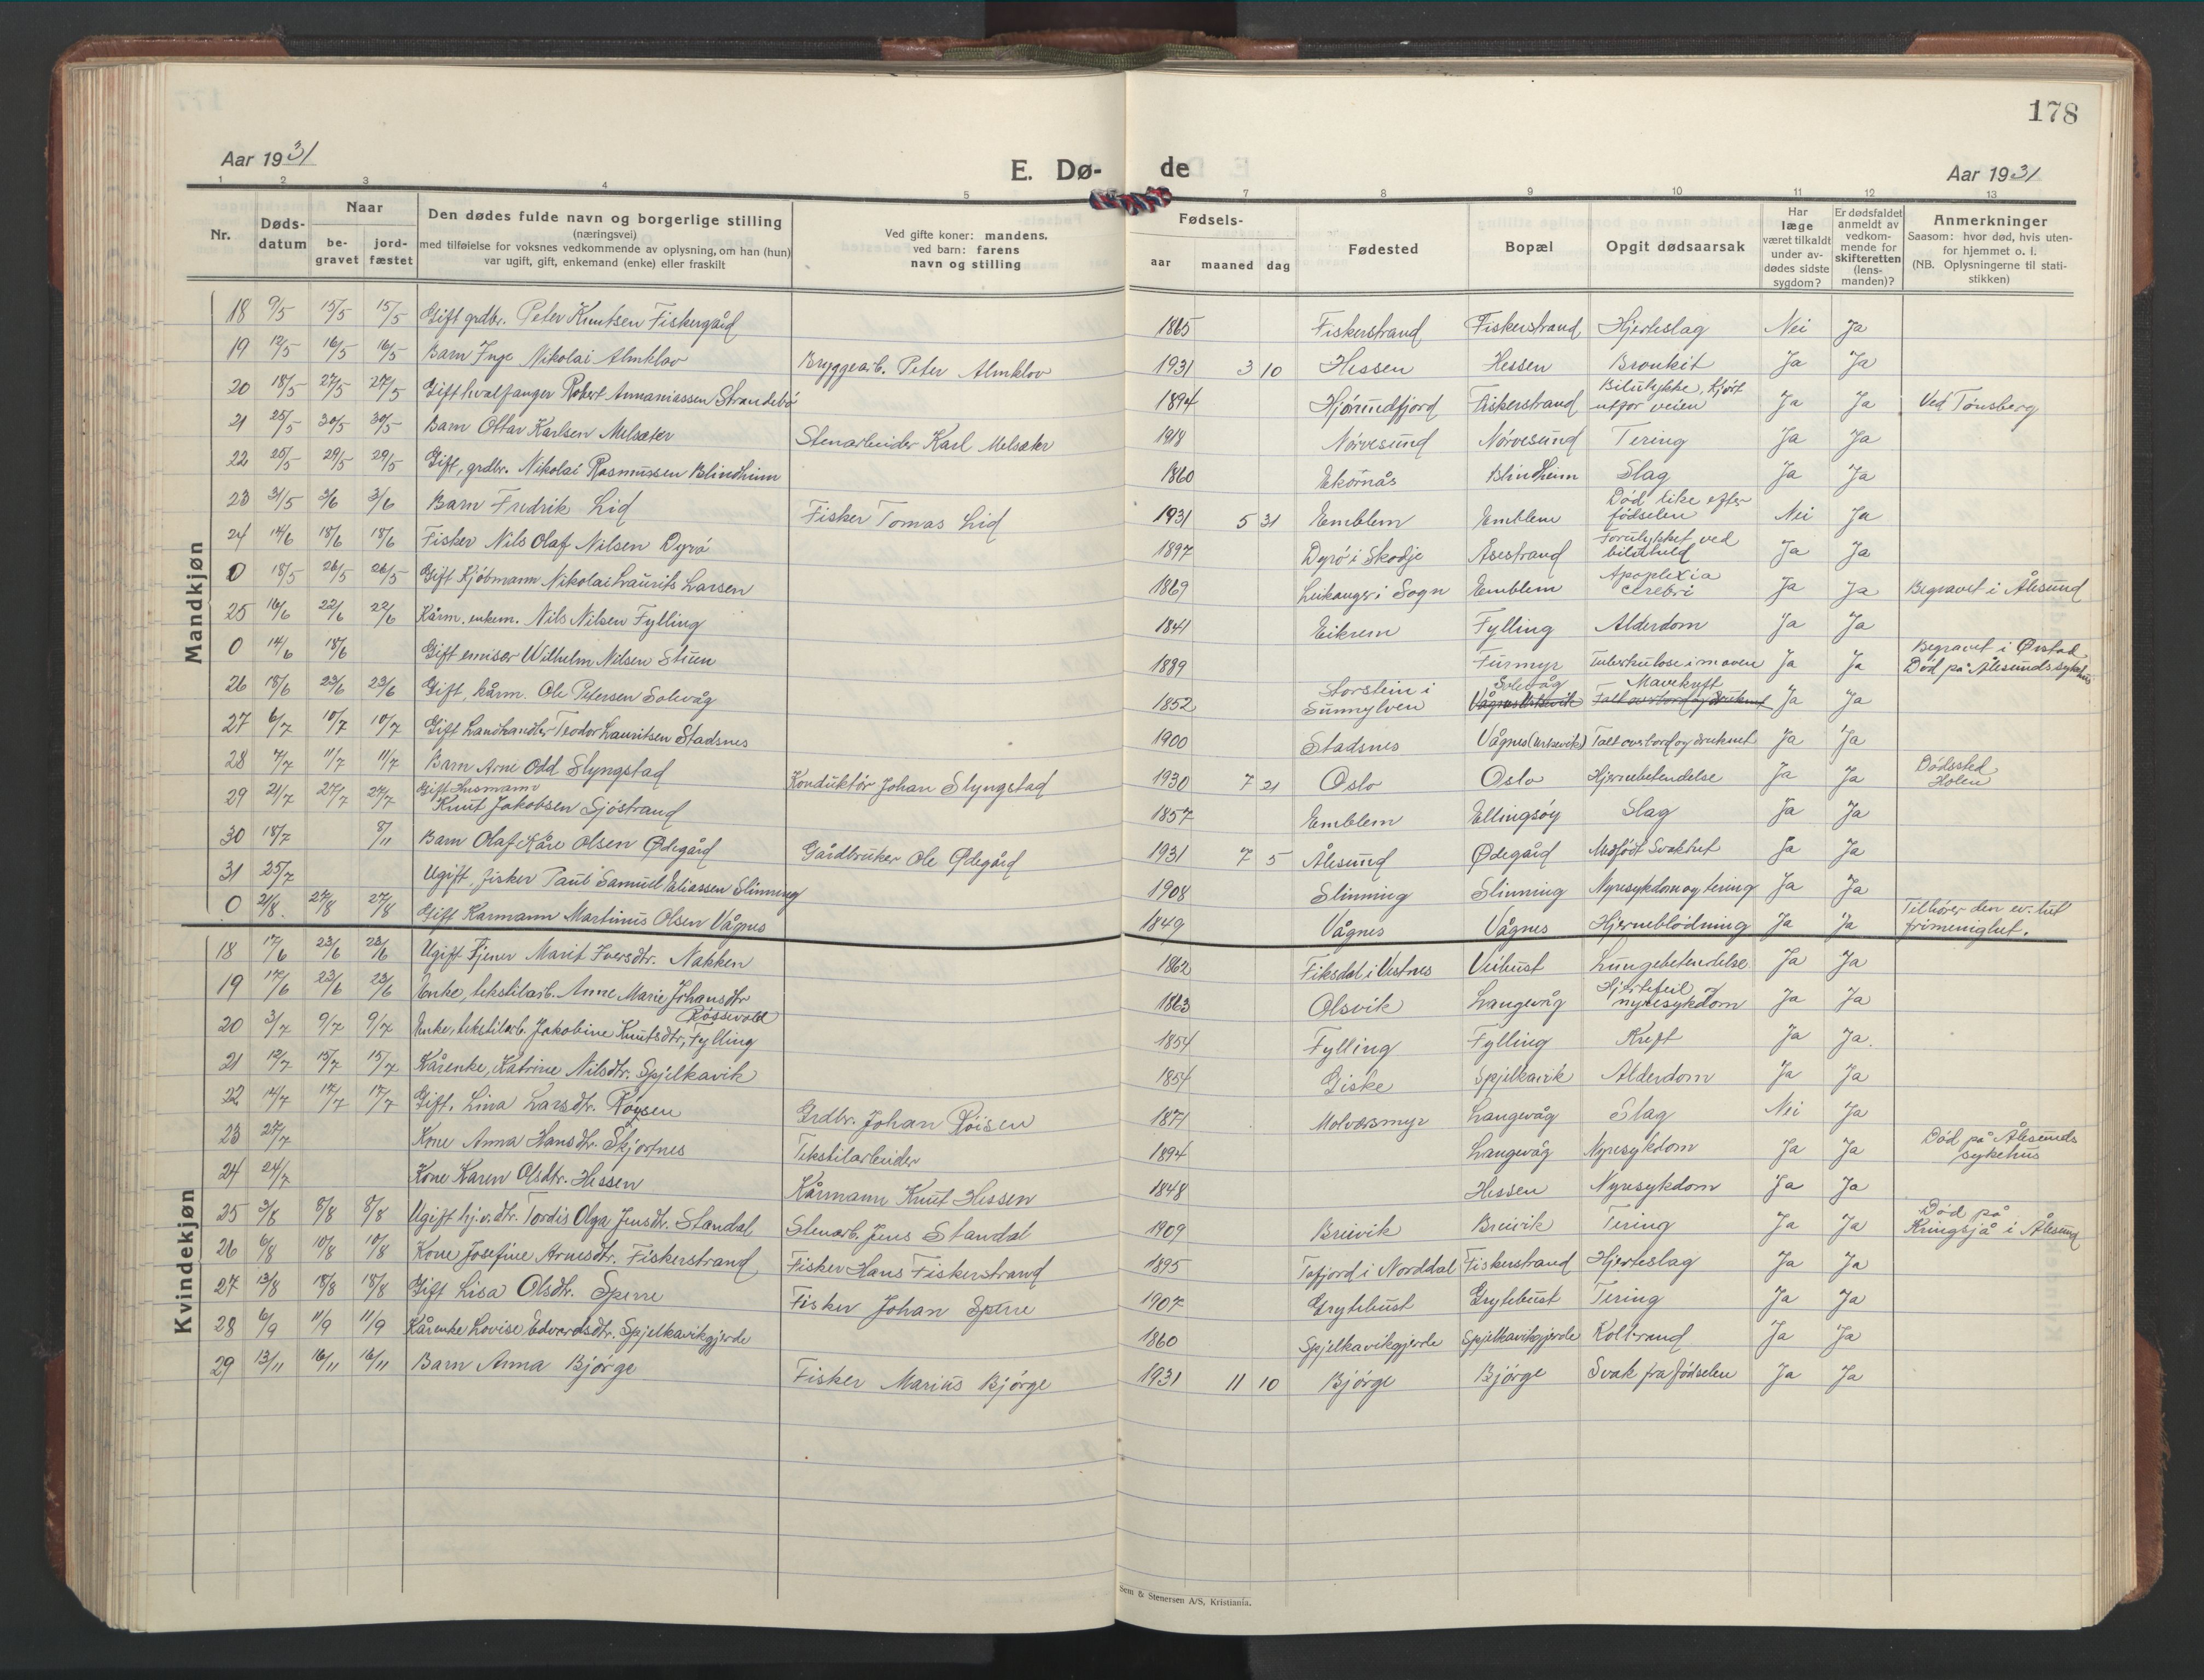 178
Aar 1931
E. Dø-
de
Aar 1931
1 2 3 4 5 7 8 9 10 11 12 13
Nr.
Døds-
datum
Naar
be-
gravet
jord-
fæstet
Den dødes fulde navn og borgerlige stilling
(næringsvei)
med tilføielse for voksnes vedkommende av oplysning, om han (hun)
var ugift, gift, enkemand (enke) eller fraskilt
Ved gifte koner: mandens.
ved barn: farens
navn og stilling
Fødsels-
aar maaned dag
Fødested
Bopæl
Opgit dødsaarsak
Har
læge
været tilkaldt
under av-
dødes sidste
sygdom?
Er dødsfaldet
anmeldt av
vedkom-
mende for
skifteretten
(lens-
manden)?
Anmerkninger
Saasom: hvor død, hvis uten-
for hjemmet o. l.
(NB. Oplysningerne til stati-
stikken)
Mandkjøn
18 9/5 15/5 15/5 Gift grdbr. Peter Knutsen Fiskergård 1865 Fiskerstrand Fiskerstrand Hjerteslag Nei Ja
19 12/5 16/5 16/5 Barn Inge Nikolai Almklov Bryggearb. Peter Almklov 1931 3 10 Hessen Hessen Bronkit Ja Ja
20 18/5 27/5 27/5 Gift hvalfanger Robert Annaniassen Strandebø 1894 Hjørundfjord Fiskerstrand Bilulykke, kjørt
utfor veien Ja Ja Ved Tønsberg
21 25/5 30/5 30/5 Barn Ottar Karlsen Melsæter Stenarbeider Karl Melsæter 1918 Nørvesund Nørvesund Tering Ja Ja
22 25/5 29/5 29/5 Gift, grdbr. Nikolai Rasmussen Blindheim 1860 Ekornås Blindheim Slag Ja Ja
23 31/5 3/6 3/6 Barn Fredrik Lid Fisker Tomas Lid 1931 5 31 Emblem Emblem Død like efter
fødselen Nei Ja
24 14/6 18/6 18/6 Fisker Nils Olaf Nilsen Dyrø 1897 Dyrø i Skodje Åsestrand Forulykket ved
biluheld Ja Ja
0 18/5 26/5 26/5 Gift Kjøbmann Nikolai Laurits Larsen 1869 Leikanger i Sogn Emblem Apoplexia
cerebri Ja Ja Begravet i Ålesund
25 16/6 22/6 22/6 Kårm. enkem. Nils Nilsen Fylling 1841 Eikrem Fylling Alderdom Ja Ja
0 14/6 18/6 Gift emisær Wilhelm Nilsen Stuen 1889 Furmyr Tuberkulose i maven Ja Ja Begravet i Ørstad
Død på Ålesunds sykehus
26 18/6 23/6 23/6 Gift, kårm. Ole Petersen Solevåg 1852 Storstein i
Sunnylven Solevåg Mavekreft Ja Ja
27 6/7 10/7 10/7 Gift Landhandler Teodor Lauritsen Stadsnes 1900 Stadsnes Vågnes (Urkevik) Falt overbord og druknet Ja Ja
28 7/7 11/7 11/7 Barn Arne Odd Slyngstad Konduktør Johan Slyngstad 1930 7 21 Oslo Oslo Hjernebetendelse Ja Ja Dødssted
Holen
29 21/7 27/7 27/7 Gift Husmann
Knut Jakobsen Sjøstrand 1857 Emblem Ellingsøy Slag Ja Ja
30 18/7 8/11 Barn Olaf Kåre Olsen Ødegård Gårdbruker Ole Ødegård 1931 7 5 Ålesund Ødegård Medfødt Svakhet Ja Ja
31 25/7 Ugift, fisker Paul Samuel Eliassen Slinning 1908 Slinning Slinning Nyresykdom og tering Ja Ja
0 21/8 27/8 27/8 Gift Kårmann Martinus Olsen Vågnes 1849 Vågnes Vågnes Hjerneblødning Ja Ja Tilhører den ev. lut
frimenighet.
Kvindekjøn
18 17/6 23/6 23/6 Ugift Tjener Marit Iversdtr. Nakken 1862 Fiksdal i Vestnes Veibust Lungebetendelse Ja Ja
19 17/6 23/6 23/6 Enke, tekstilarb. Anne Marie Johansdtr
Røssevold 1863 Olsvik Langevåg Hjertefeil og
nyresykdom Ja Ja
20 3/7 9/7 9/7 Enke, tekstilarb. Jakobine Knutsdtr, Fylling 1854 Fylling Fylling Kreft Ja Ja.
21 12/7 15/7 15/7 Kårenke, Katrine Nilsdtr. Spjelkavik 1854 Giske Spjelkavik Alderdom Ja Ja
22 14/7 17/7 17/7 Gift. Lina Larsdtr. Røysen Grdbr. Johan Røisen 1871 Molværsmyr Langevåg Slag Nei Ja
23 27/7 Kone Anna Hansdtr. Skjortnes Tekstilarbeider 1894 Langevåg Nyresykdom Ja Ja Død på Ålesunds
sykehus
24 24/7 Kone Karen Olsdtr. Hessen Kårmann Knut Hessen 1848 Hessen Nyresykdom Ja Ja
25 3/8 8/8 8/8 Ugift hj.v. dtr. Tordis Olga Jensdtr. Standal Stenarb. Jens Standal 1909 Breivik Breivik Tering Ja Ja Død på
Kringsjå i Ålesund
26 6/8 10/8 10/8 Kone Josefine Arnesdtr. Fiskerstrand Fisker Hans Fiskerstrand 1895 Tafjord i Norddal Fiskerstrand Hjerteslag Ja Ja
27 13/8 18/8 18/8 Gift Lisa Olsdtr. Sperre Fisker Johan Sperre 1907 Grytebust Grytebust Tering Ja Ja
28 6/9 11/9 11/9 Kårenke Lovise Edvardsdtr. Spjelkavikgjerde 1860 Spjelkavikgjerde Spjelkavikgjerde Kolbrand Ja Ja
29 13/11 16/11 16/11 Barn Anna Bjørge Fisker Marius Bjørge 1931 11 10 Bjørge Bjørge Svak fra fødselen Ja Ja
Sem & Stenersen A/S, Kristiania.